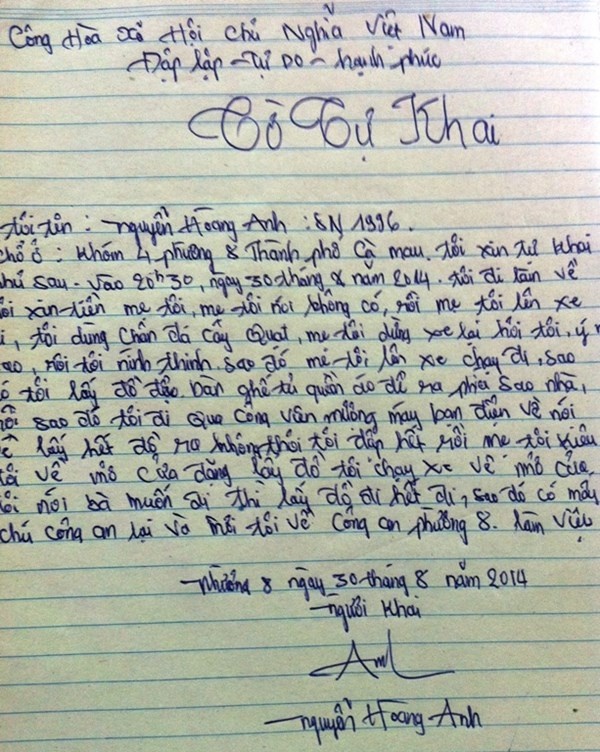 Công Hòa Xã Hội Chủ Nghĩa Việt Nam
Đập lập - Tự Do - hạnh phúc
Cờ Tự Khai
tôi tên : nguyễn Hoàng Anh : SN 1996.
chổ ở : Khóm 4 phường 8 Thành phố Cà mau. tôi xin tự Khai
như sau - vào 20h30, ngày 30 tháng 8 năm 2014. tôi đi làm về
tôi xin tiền mẹ tôi, mẹ tôi nói không có, rồi mẹ tôi lên xe
đi, tôi dùng chân đá cây Quạt, mẹ tôi dừng xe lại hỏi tôi, ý
, rồi tôi nính thinh. sao đó mẹ tôi lên xe chạy đi, sao
đó tôi lấy đồ đạo. bàn ghế tủ quần áo để ra phía sao nhà,
rồi sao đó tôi đi qua công văn mượng máy ban điện về nói
mẹ lấy hết đồ ra không thôi tôi đần hết rồi mẹ tôi kiêu
tôi về mở cửa đặng lấy đồ tôi chạy xe về mở cửa,
tôi nói bà muốn đi thì lấy đồ đi hết đi, sao đó có mấy
chú công an lại và mời tôi về công an phường 8. làm việc
Phường 8 ngày 30 tháng 8 năm 2014
người khai
Anh
nguyễn Hoàng Anh